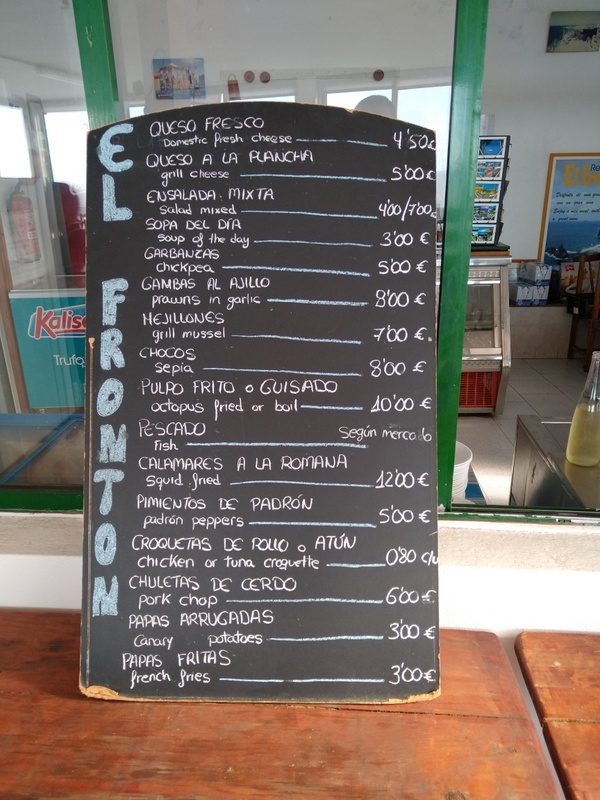 EL FRONTON
QUESO FRESCO
Domestic fresh cheese 4'50€
QUESO A LA PLANCHA
grill cheese 5'00€
ENSALADA MIXTA
Salad mixed 4'00/7'00€
SOPA DEL DÍA
soup of the day 3'00 €
GARBANZAS
chickpea 5'00 €
GAMBAS AL AJILLO
prawns in garlic 8'00 €
MEJILLONES
grill mussel 7'00 €
CHOCOS
sepia 8'00 €
PULPO FRITO o GUISADO
octopus fried or boil 10'00 €
PESCADO
Fish Según mercado
CALAMARES A LA ROMANA
squid fried 12'00 €
PIMIENTOS DE PADRÓN
padrón peppers 5'00 €
CROQUETAS DE POLLO o ATÚN
chicken or tuna croquette 0'80 c/u
CHULETAS DE CERDO
pork chop 6'00 €
PAPAS ARRUGADAS
Canary potatoes 3'00 €
PAPAS FRITAS
french fries 3'00 €
Kalise
Trufa